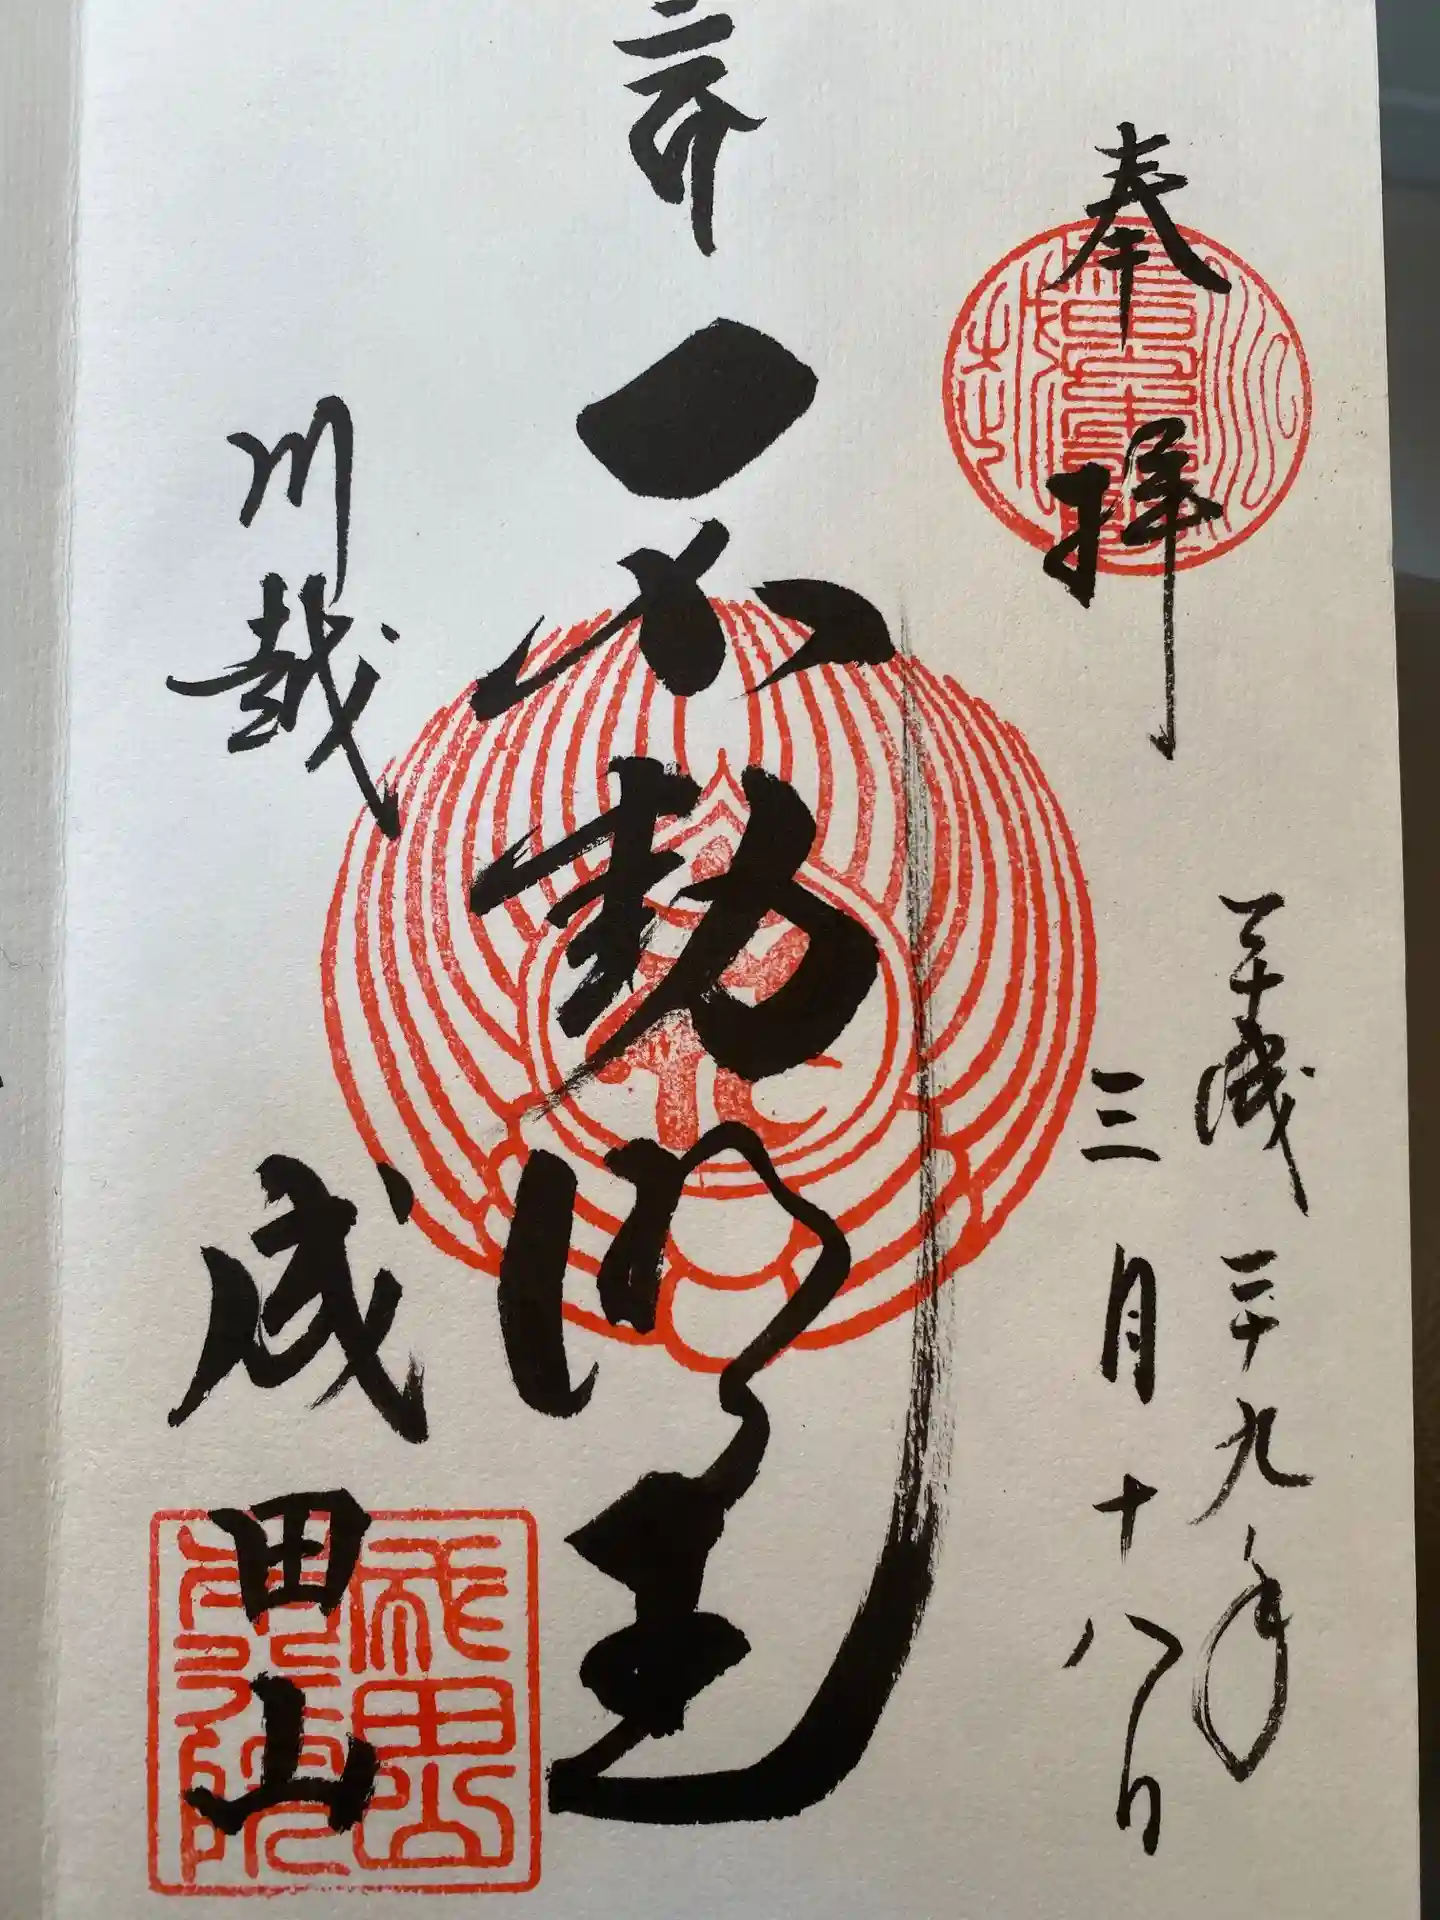 奉拝
平成二十九年
三月十八日
不動明王
川越
成田山
成田山
本行院